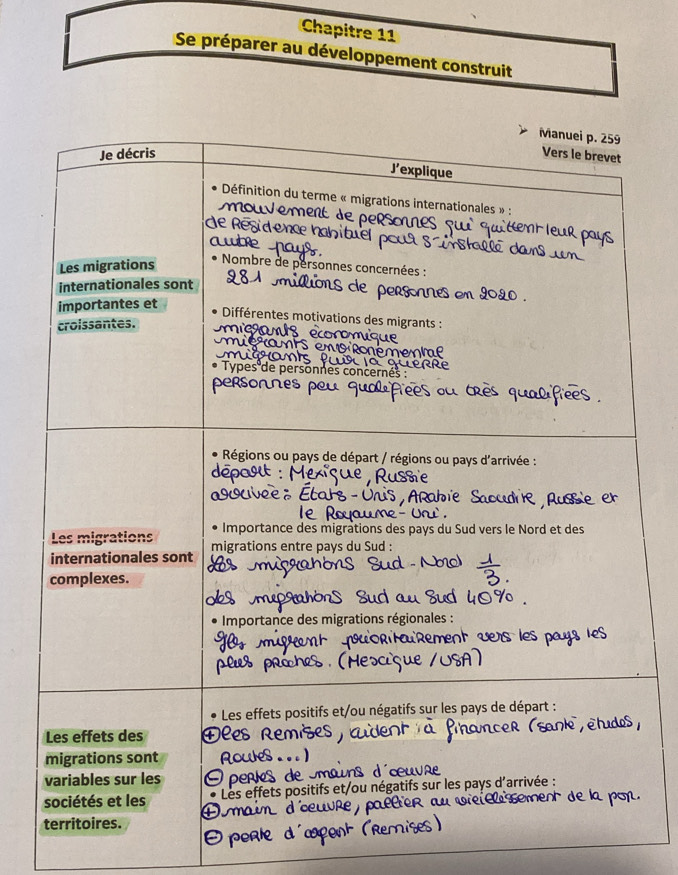 Chapitre 11
Se préparer au développement construit
➢ Manuel p. 259
Vers le brevet
Je décris
J'explique
Les migrations
internationales sont
importantes et
croissantes.
• Définition du terme « migrations internationales » :
mouvement de personnes qui quittent leur pays
de Résidence habituel pour s'installé dans un
autre pays.
• Nombre de personnes concernées :
281 millions de personnes en 2020.
• Différentes motivations des migrants :
migrants économique
migrants environemental
migrants fuir la guerre
• Types de personnes concernés :
personnes peu qualifiées ou très qualifiées.
Les migrations
internationales sont
complexes.
• Régions ou pays de départ / régions ou pays d'arrivée :
départ : Mexique, Russie
arrivée : États-Unis, Arabie Saoudite, Russie et
le Royaume-Uni.
• Importance des migrations des pays du Sud vers le Nord et des
migrations entre pays du Sud :
les migrations Sud-Nord 1/3.
des migrations Sud au Sud 40%.
• Importance des migrations régionales :
les migrent prioritairement vers les pays les
plus proches. (Mexique / USA)
Les effets des
migrations sont
variables sur les
sociétés et les
territoires.
• Les effets positifs et/ou négatifs sur les pays de départ :
⊕ les Remises, aident à financer (santé, études,
Routes...)
⊖ pertes de mains d'œuvre
• Les effets positifs et/ou négatifs sur les pays d'arrivée :
⊕ main d'œuvre, pallier au vieillissement de la pop.
⊖ perte d'argent (Remises)